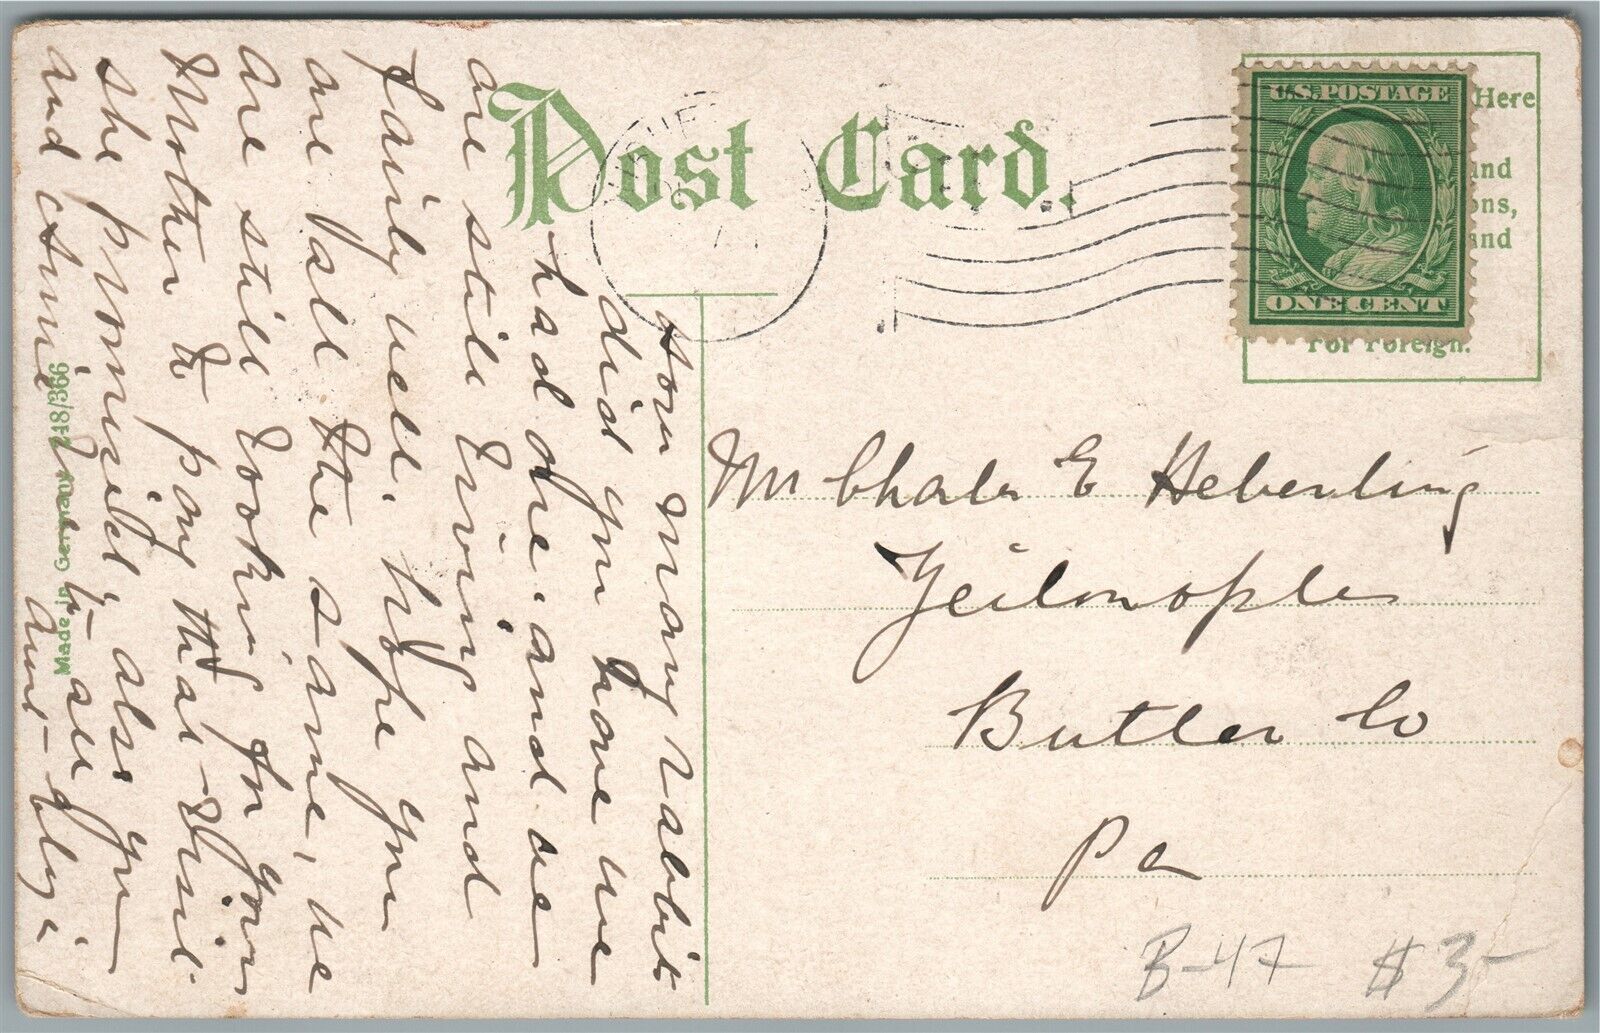 Post Card.
U.S. POSTAGE
ONE CENT
Here
and
ons,
and
For Foreign.
Made in Germany 218/366
How many rabbit
did you have we
had one. and we
are still living and
fairly well, hope you
are all the same, we
are still looking for your
Mother to pay that visit
she promised, also you
and
Aunt
Mr Charles E Heberling
Zeilenople
Butler Co
Pa
B-47 $3-